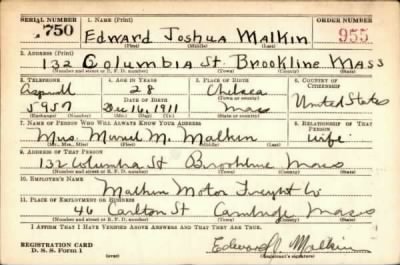 SERIAL NUMBER 1. NAME (Print) ORDER NUMBER
750 Edward Joshua Malkin 955
(First) (Middle) (Last)
2. ADDRESS (Print)
132 Columbia St. Brookline Mass
(Number and street or R. F. D. number) (Town) (County) (State)
3. TELEPHONE 4. AGE IN YEARS 5. PLACE OF BIRTH 6. COUNTRY OF CITIZENSHIP
Aspinwall 28 Chelsea
DATE OF BIRTH (Town or county) United States
5957 Dec 16, 1911 Mass
(Exchange) (Number) (Mo.) (Day) (Yr.) (State or country)
7. NAME OF PERSON WHO WILL ALWAYS KNOW YOUR ADDRESS 8. RELATIONSHIP OF THAT PERSON
Mrs. Muriel M. Malkin wife
(Mr., Mrs., Miss) (First) (Middle) (Last)
9. ADDRESS OF THAT PERSON
132 Columbia St Brookline Mass
(Number and street or R. F. D. number) (Town) (County) (State)
10. EMPLOYER'S NAME
Malkin Motor Freight Co
11. PLACE OF EMPLOYMENT OR BUSINESS
46 Carlton St Cambridge Mass
(Number and street or R. F. D. number) (Town) (County) (State)
I AFFIRM THAT I HAVE VERIFIED ABOVE ANSWERS AND THAT THEY ARE TRUE.
REGISTRATION CARD Edward J Malkin
D. S. S. Form 1 (over) (Registrant's signature)